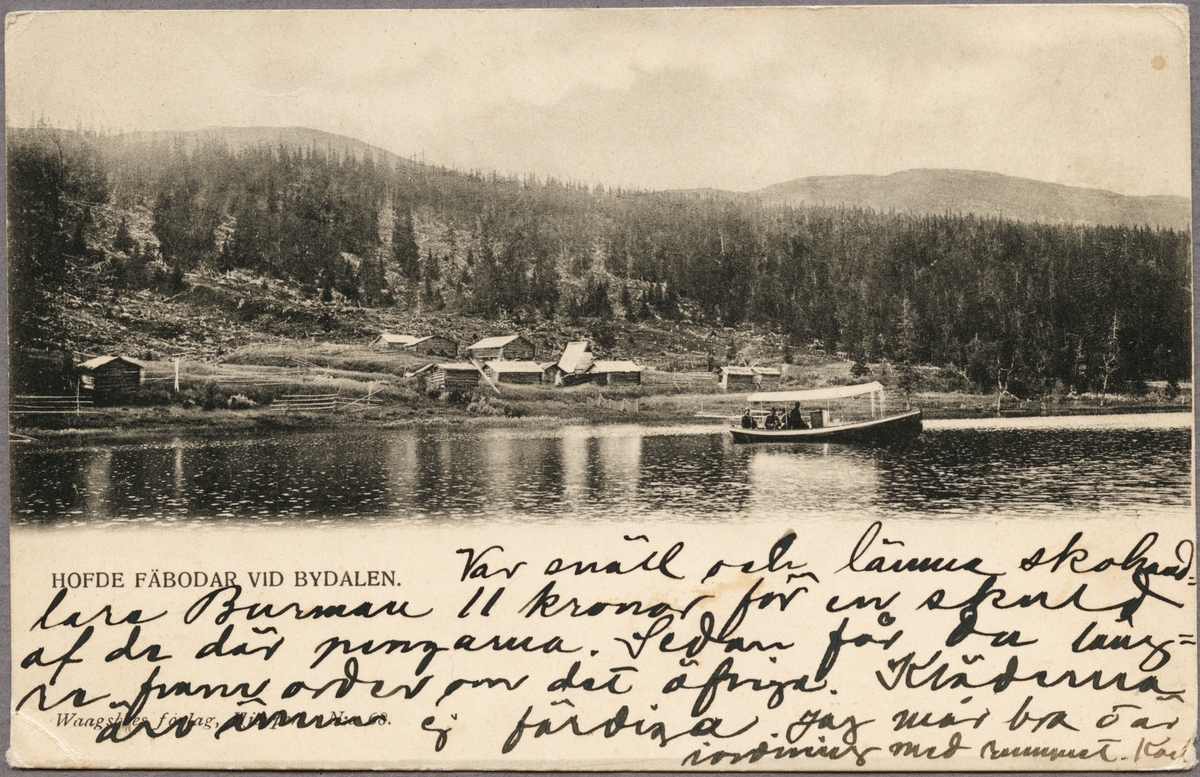 HOFDE FÄBODAR VID BYDALEN.
Var snäll och lämna skohand=
lare Burman 11 kronor för en skuld
af de där pengarna. Sedan får Du läng=
re fram order om det öfriga. Kläderna
äro ännu ej färdiga Jag mår bra o är
Waagsbøes förlag, N:o 68.
med rummet. Karl